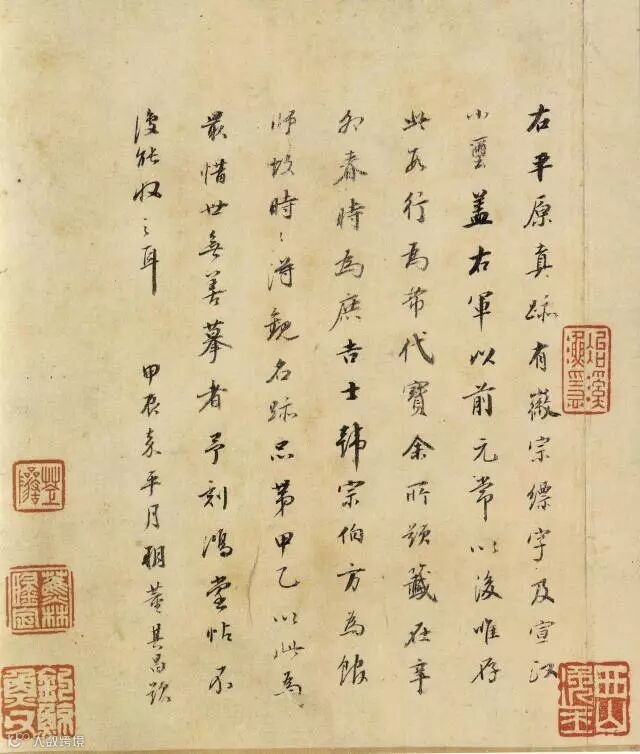 右平原真跡有徽宗縹字及宣和
小璽蓋右軍以前元常以後唯存
此數行為希代寶余所題籤在辛
卯春時為庶吉士韓宗伯方為館
師故時〻得觀名跡品第甲乙以此為
最惜世無善摹者予刻鴻堂帖不
復能收之耳 甲辰嘉平月朔董其昌題
大数跨境